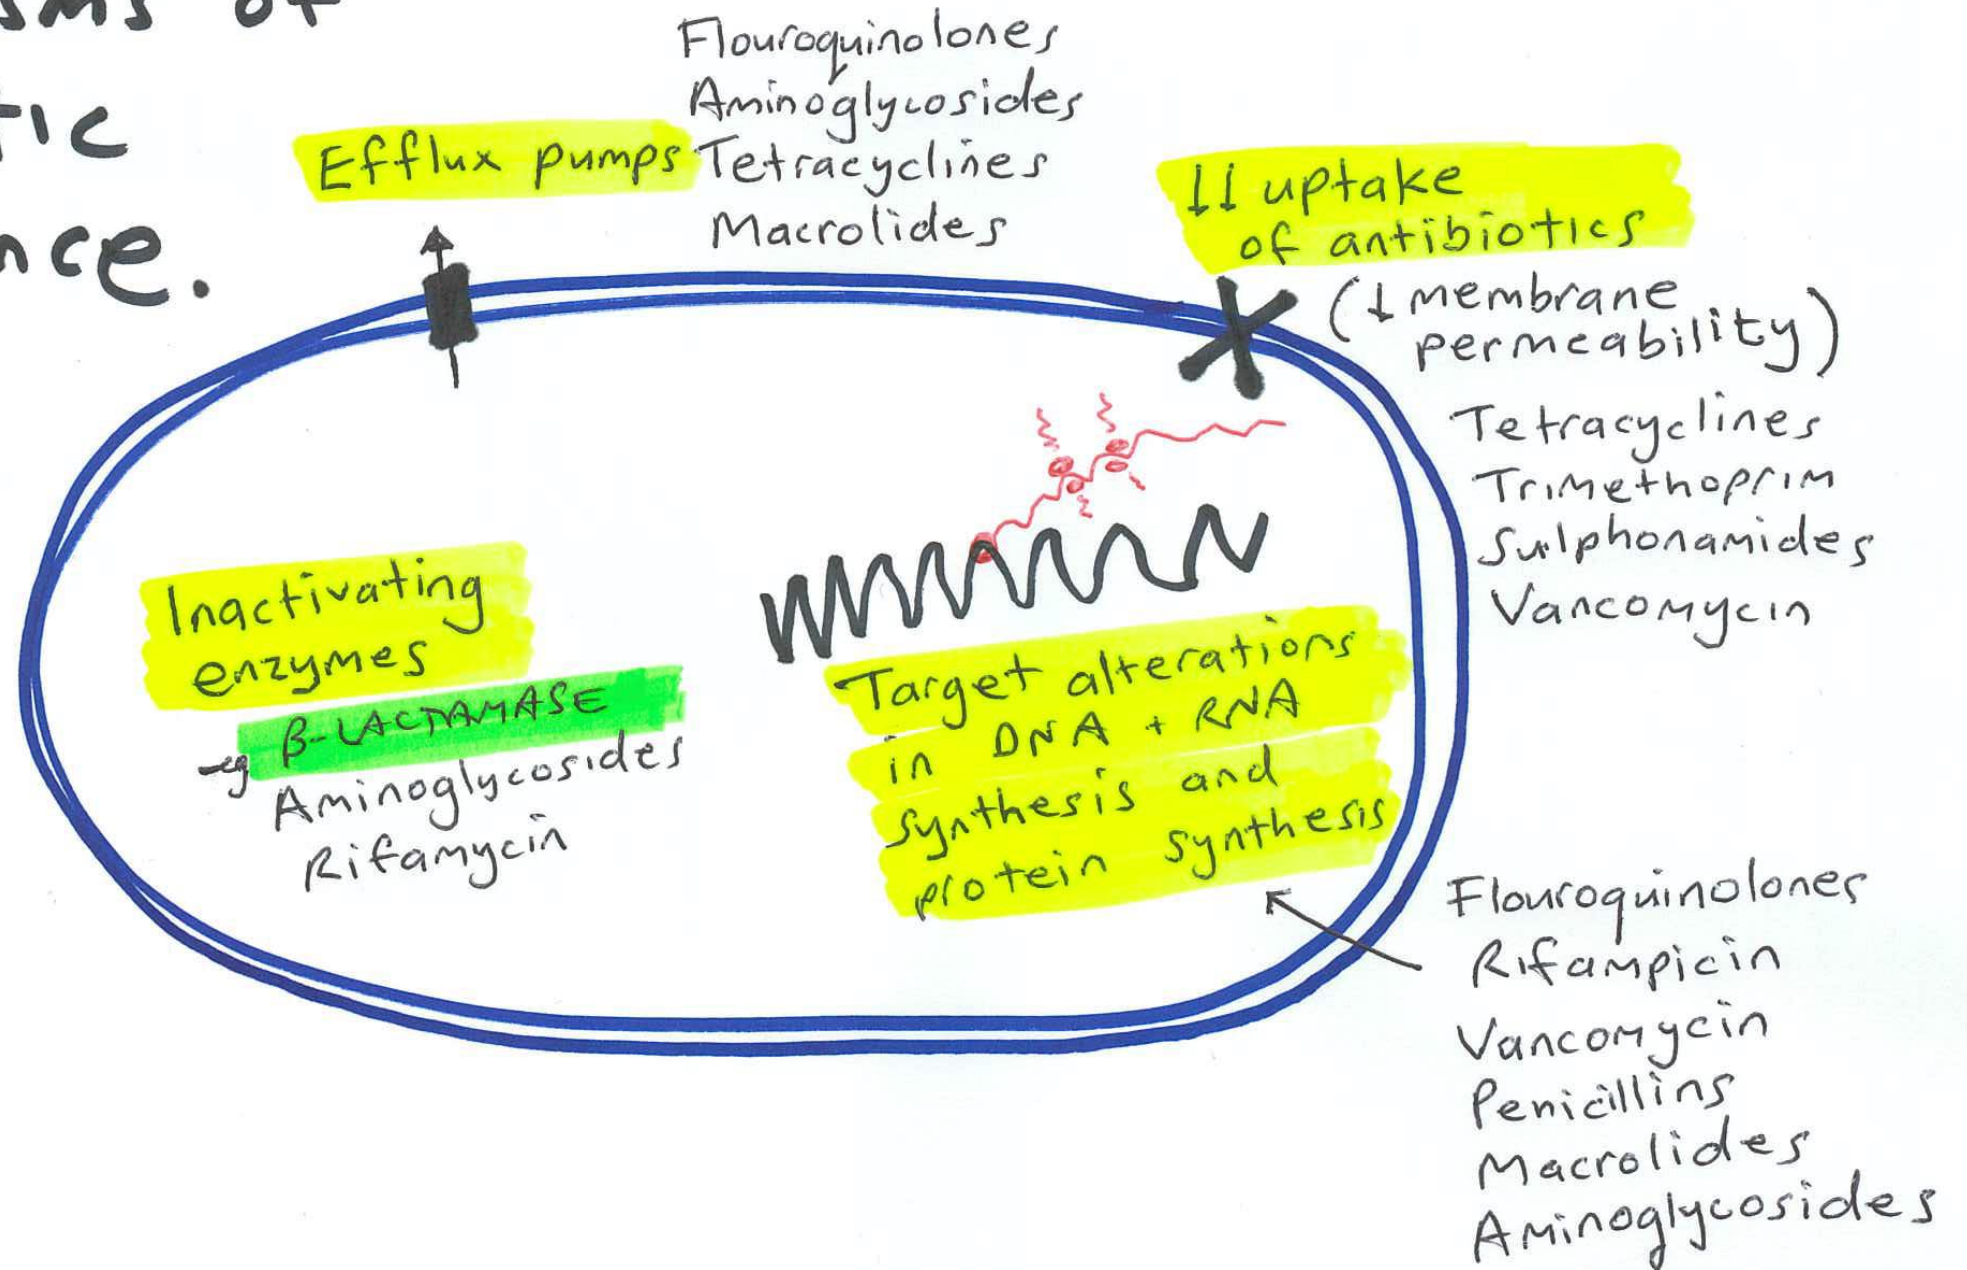 sms of
tic
nce.
Flouroquinolones
Aminoglycosides
Efflux pumps Tetracyclines
Macrolides
↓↓ uptake
of antibiotics
(↓ membrane
permeability)
Tetracyclines
Trimethoprim
Sulphonamides
Vancomycin
Inactivating
enzymes
eg β-LACTAMASE
Aminoglycosides
Rifamycin
Target alterations
in DNA + RNA
synthesis and
protein synthesis
Flouroquinolones
Rifampicin
Vancomycin
Penicillins
Macrolides
Aminoglycosides